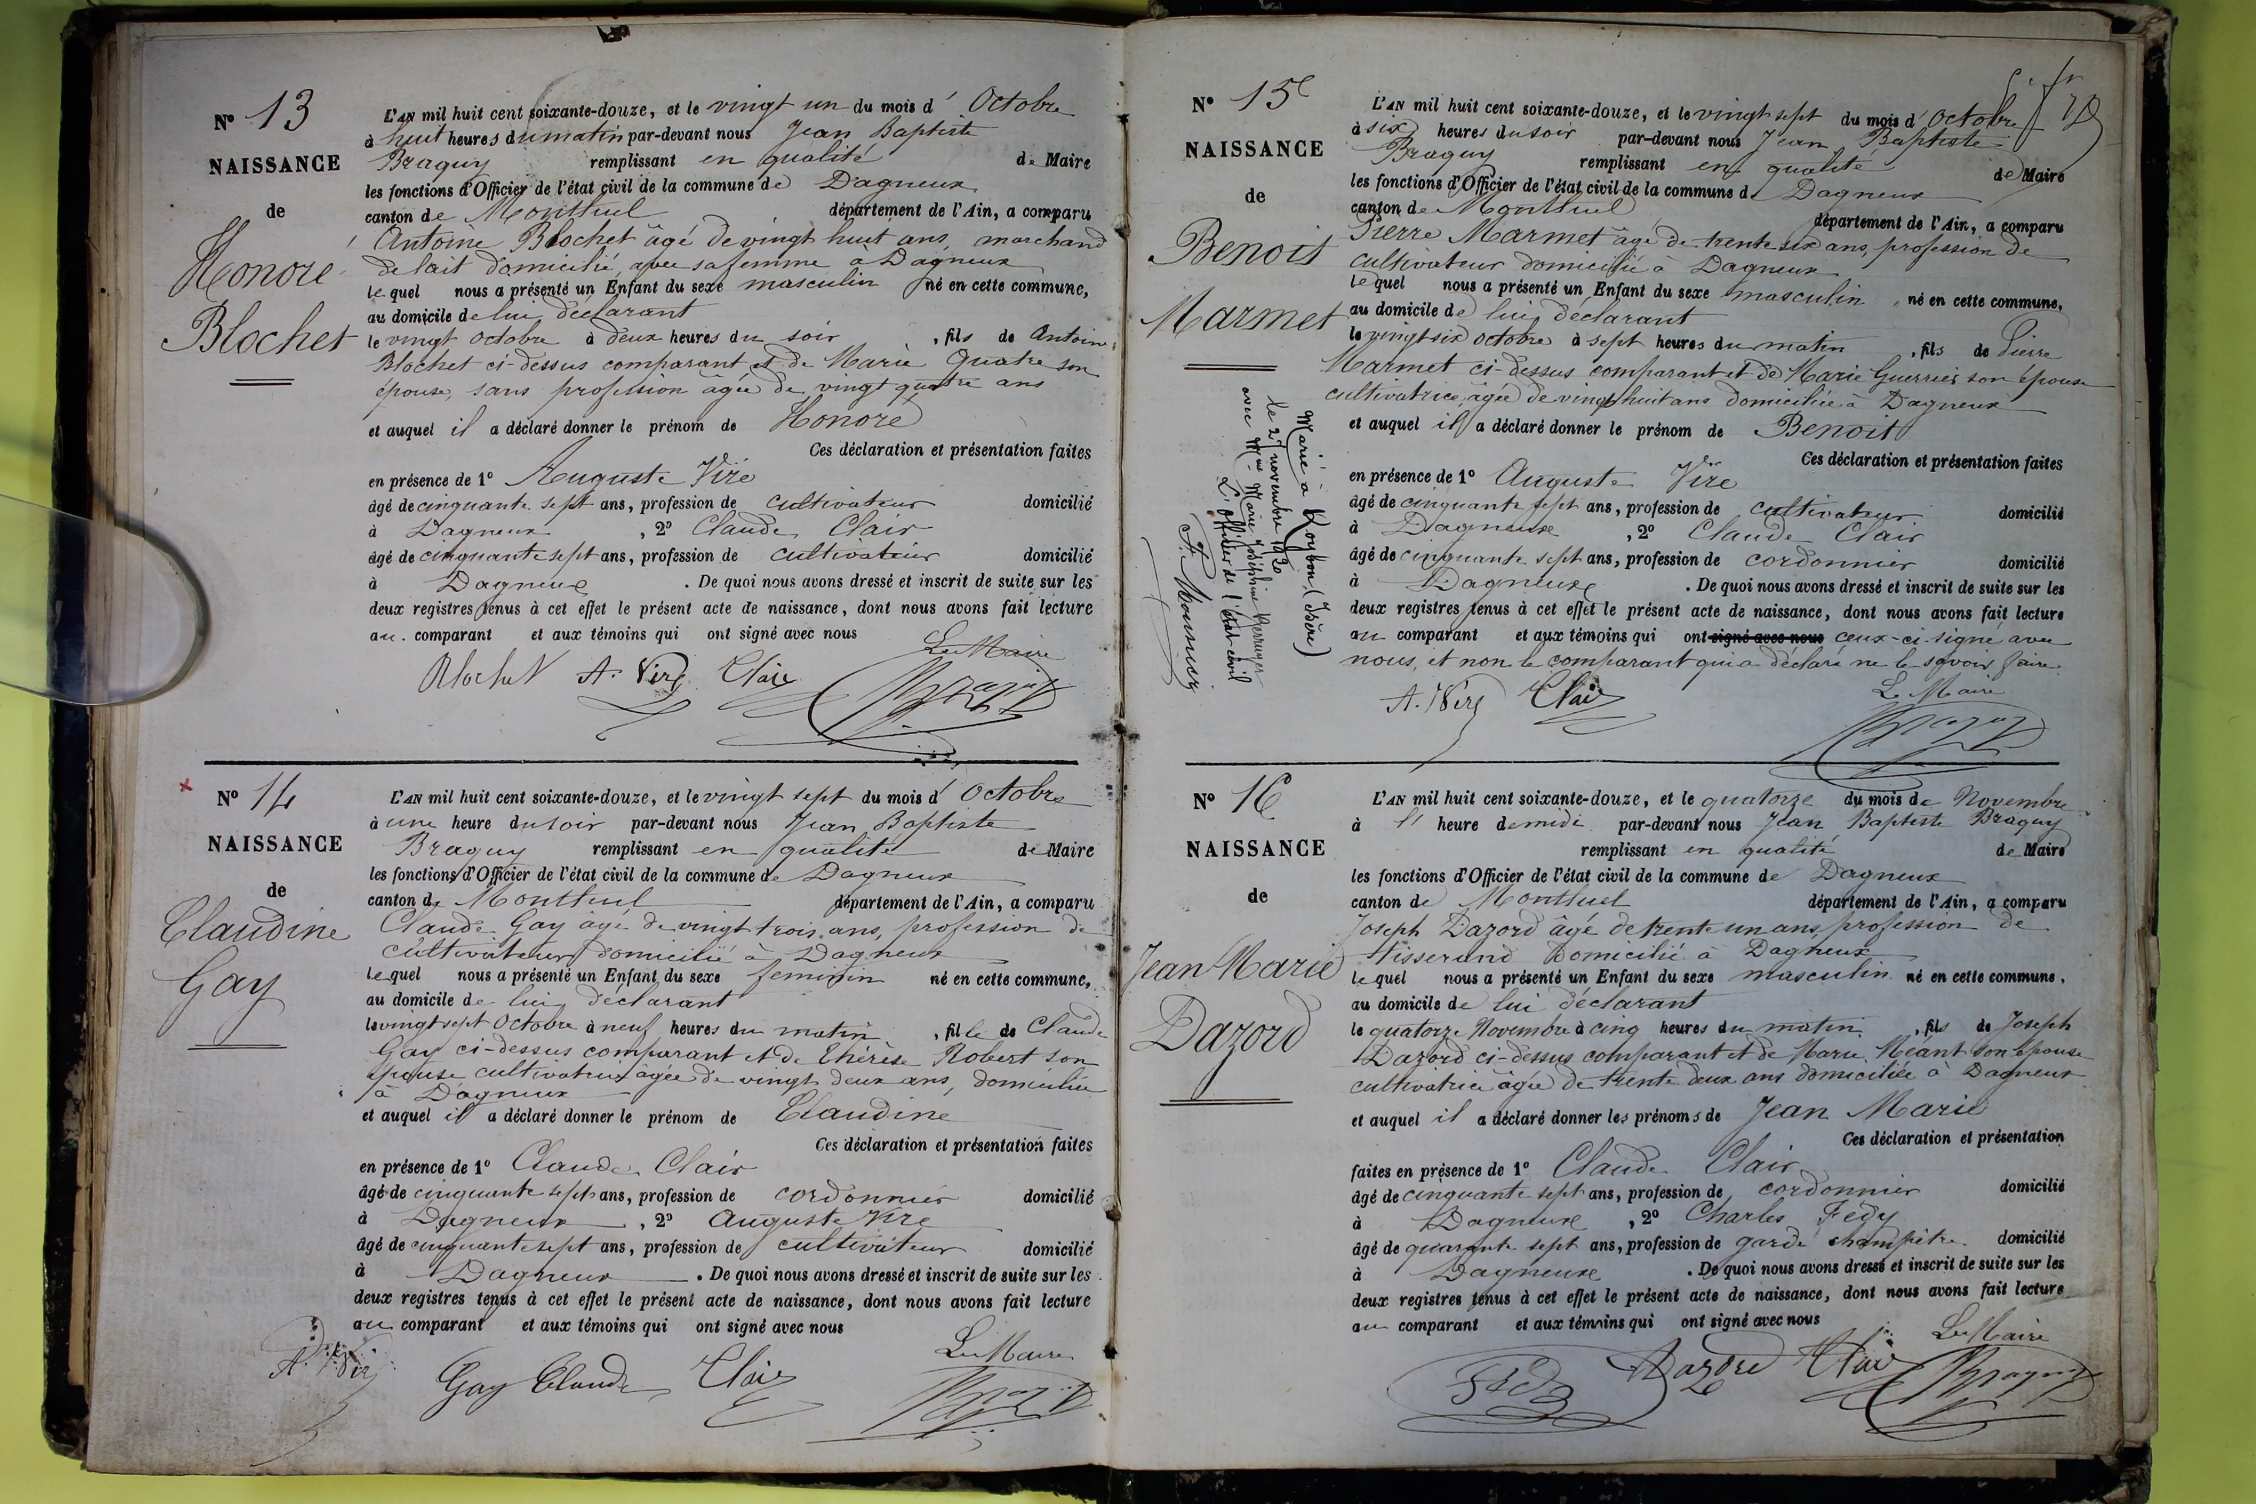 N° 13
NAISSANCE
de
Honoré
Blochet
L'AN mil huit cent soixante-douze, et le vingt un du mois d' Octobre
à huit heures du matin par-devant nous Jean Baptiste
Braguy remplissant en qualité de Maire
les fonctions d'Officier de l'état civil de la commune de Dagneux
canton de Montluel département de l'Ain, a comparu
Antoine Blochet âgé de vingt huit ans, marchand
de lait domicilié, avec sa femme a Dagneux
le quel nous a présenté un Enfant du sexe masculin né en cette commune,
au domicile de lui déclarant
le vingt octobre à deux heures du soir, fils de Antoine
Blochet ci-dessus comparant et de Marie Quatre son
épouse, sans profession âgée de vingt quatre ans
et auquel il a déclaré donner le prénom de Honoré
Ces déclaration et présentation faites
en présence de 1° Auguste Viré
âgé de cinquante sept ans, profession de cultivateur domicilié
à Dagneux, 2° Claude Clair
âgé de cinquante sept ans, profession de cultivateur domicilié
à Dagneux. De quoi nous avons dressé et inscrit de suite sur les
deux registres tenus à cet effet le présent acte de naissance, dont nous avons fait lecture
au comparant et aux témoins qui ont signé avec nous
Le Maire
Blochet A. Viré Clair Braguy
N° 14
NAISSANCE
de
Claudine
Gay
L'AN mil huit cent soixante-douze, et le vingt sept du mois d' Octobre
à une heure du soir par-devant nous Jean Baptiste
Braguy remplissant en qualité de Maire
les fonctions d'Officier de l'état civil de la commune de Dagneux
canton de Montluel département de l'Ain, a comparu
Claude Gay âgé de vingt trois ans, profession de
cultivateur domicilié à Dagneux
le quel nous a présenté un Enfant du sexe feminin né en cette commune,
au domicile de lui déclarant
le vingt sept Octobre à neuf heures du matin, fille de Claude
Gay ci-dessus comparant et de Thérèse Robert son
épouse cultivateur âgée de vingt deux ans, domiciliée
à Dagneux
et auquel il a déclaré donner le prénom de Claudine
Ces déclaration et présentation faites
en présence de 1° Claude Clair
âgé de cinquante sept ans, profession de cordonnier domicilié
à Dagneux, 2° Auguste Viré
âgé de cinquante sept ans, profession de cultivateur domicilié
à Dagneux. De quoi nous avons dressé et inscrit de suite sur les
deux registres tenus à cet effet le présent acte de naissance, dont nous avons fait lecture
au comparant et aux témoins qui ont signé avec nous
Le Maire
A. Viré Gay Claude Clair Braguy
N° 15
NAISSANCE
de
Benoit
Marmet
Marié à Roybon (Isère)
le 27 novembre 1920
avec Mme Marie Joséphine
L'officier de l'état-civil
L'AN mil huit cent soixante-douze, et le vingt sept du mois d' Octobre
à six heures du soir par-devant nous Jean Baptiste
Braguy remplissant en qualité de Maire
les fonctions d'Officier de l'état civil de la commune de Dagneux
canton de Montluel département de l'Ain, a comparu
Pierre Marmet âgé de trente six ans, profession de
cultivateur domicilié à Dagneux
le quel nous a présenté un Enfant du sexe masculin, né en cette commune,
au domicile de lui déclarant
le vingt six octobre à sept heures du matin, fils de Pierre
Marmet ci-dessus comparant et de Marie Guerrier son épouse
cultivatrice, âgée de vingt huit ans domiciliée à Dagneux
et auquel il a déclaré donner le prénom de Benoit
Ces déclaration et présentation faites
en présence de 1° Auguste Viré
âgé de cinquante sept ans, profession de cultivateur domicilié
à Dagneux, 2° Claude Clair
âgé de cinquante sept ans, profession de cordonnier domicilié
à Dagneux. De quoi nous avons dressé et inscrit de suite sur les
deux registres tenus à cet effet le présent acte de naissance, dont nous avons fait lecture
au comparant et aux témoins qui ont signé avec nous ceux-ci signe avec
nous, et non le comparant qui a déclaré ne le savoir faire.
Le Maire
A. Viré Clair Braguy
N° 16
NAISSANCE
de
Jean Marie
Dazord
L'AN mil huit cent soixante-douze, et le quatorze du mois de Novembre
à l' heure de midi par-devant nous Jean Baptiste Braguy
remplissant en qualité de Maire
les fonctions d'Officier de l'état civil de la commune de Dagneux
canton de Montluel département de l'Ain, a comparu
Joseph Dazord âgé de trente un ans, profession de
tisserand domicilié à Dagneux
le quel nous a présenté un Enfant du sexe masculin né en cette commune,
au domicile de lui déclarant
le quatorze Novembre à cinq heures du matin, fils de Joseph
Dazord ci-dessus comparant et de Marie Méant son épouse
cultivatrice âgée de trente deux ans domiciliée à Dagneux
et auquel il a déclaré donner les prénoms de Jean Marie
Ces déclaration et présentation
faites en présence de 1° Claude Clair
âgé de cinquante sept ans, profession de cordonnier domicilié
à Dagneux, 2° Charles Fédy
âgé de quarante sept ans, profession de garde champêtre domicilié
à Dagneux. De quoi nous avons dressé et inscrit de suite sur les
deux registres tenus à cet effet le présent acte de naissance, dont nous avons fait lecture
au comparant et aux témoins qui ont signé avec nous
Le Maire
Fédy Dazord Clair Braguy